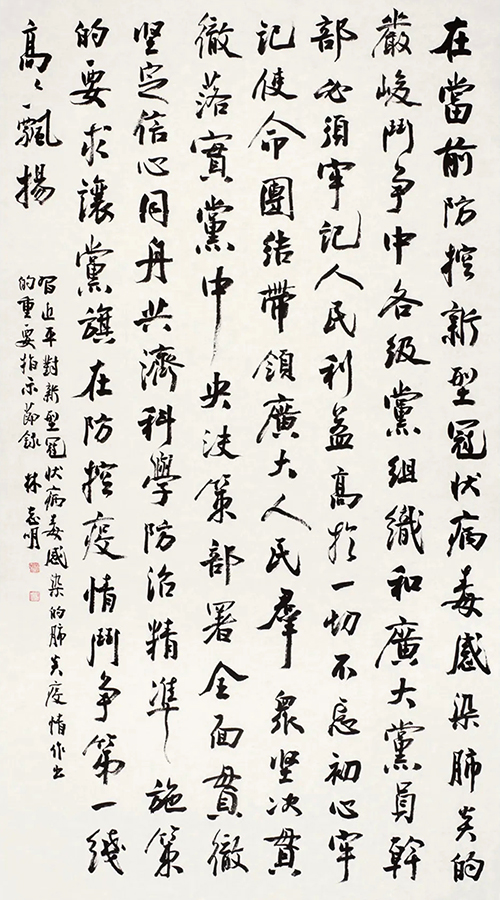 在當前防控新型冠状病毒感染肺炎的
嚴峻鬥争中各級黨組織和廣大黨員幹
部必須牢記人民利益高於一切不忘初心牢
記使命團結帶領廣大人民羣眾坚决貫
徹落實黨中央决策部署全面貫徹
坚定信心同舟共濟科學防治精準施策
的要求讓黨旗在防控疫情鬥争第一綫
高々飄揚
習近平對新型冠状病毒感染的肺炎疫情作出
的重要指示節録 林志明